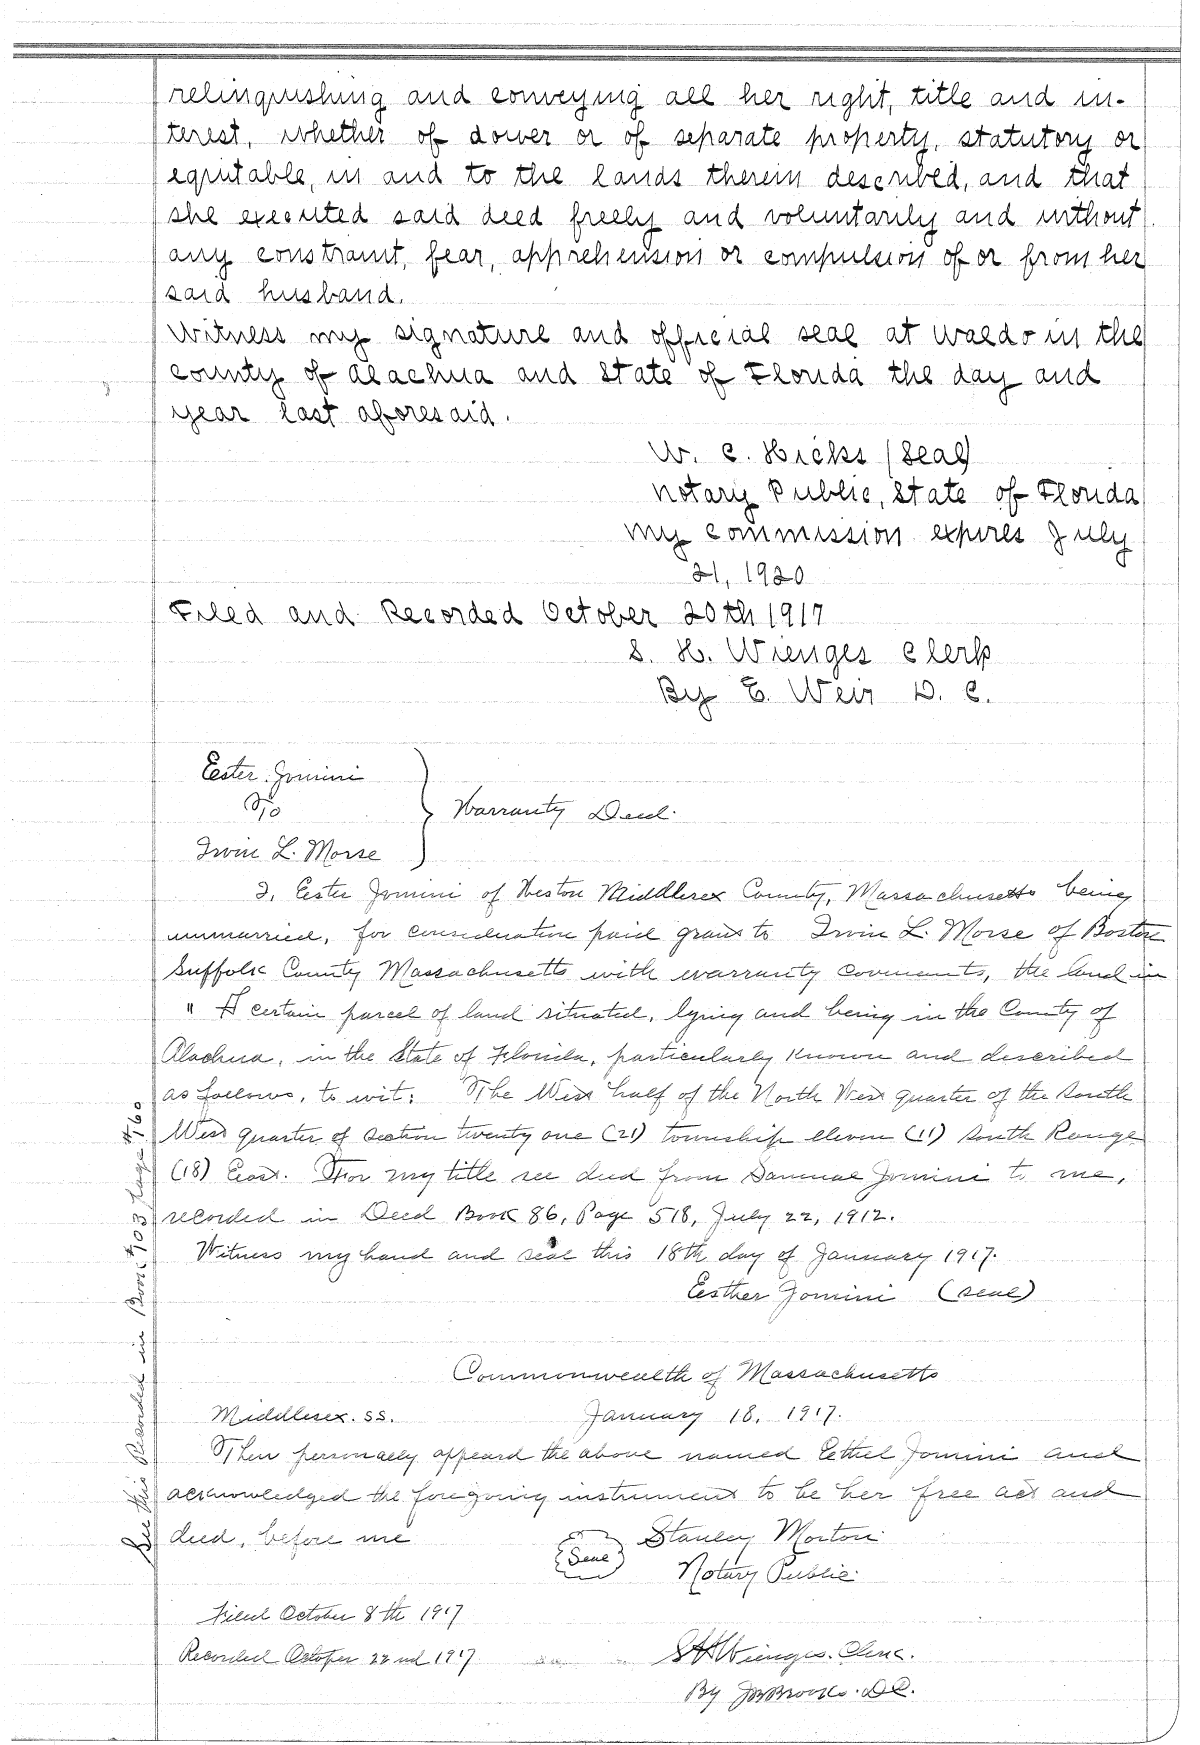 relinquishing and conveying all her right, title and in-
terest, whether of dower or of separate property, statutory or
equitable, in and to the lands therein described, and that
she executed said deed freely and voluntarily and without
any constraint, fear, apprehension or compulsion of or from her
said husband.
Witness my signature and official seal at Waldo in the
county of Alachua and State of Florida the day and
year last aforesaid.
W. C. Hicks (Seal)
Notary Public, State of Florida
My commission expires July
21, 1920
Filed and Recorded October 20th 1917
S. H. Wienges Clerk
By E. Weir D. C.
Eester Jomini
To
Warranty Deed.
Irwin L. Morse
I, Eester Jomini of Weston Middlesex County, Massachusetts being
unmarried, for consideration paid grant to Irwin L. Morse of Boston
Suffolk County Massachusetts with warranty covenants, the land in
" A certain parcel of land situated, lying and being in the County of
Alachua, in the State of Florida, particularly known and described
as follows, to wit: The West half of the North West quarter of the South
West quarter of section twenty one (21) township eleven (11) South Range
(18) East. For my title see deed from Samuel Jomini to me,
recorded in Deed Book 86, Page 518, July 22, 1912.
Witness my hand and seal this 18th day of January 1917.
Eesther Jomini (seal)
Commonwealth of Massachusetts
Middlesex. ss. January 18, 1917.
Then personally appeard the above named Eethel Jomini and
acknowledged the foregoing instrument to be her free act and
deed, before me
Seal
Stanley Morton
Notary Public.
Filed October 8th 1917
Recorded October 22nd 1917
S H Wienges. Clerk.
By J B Brooks. D C.
See this Recorded in Book #103 page #160